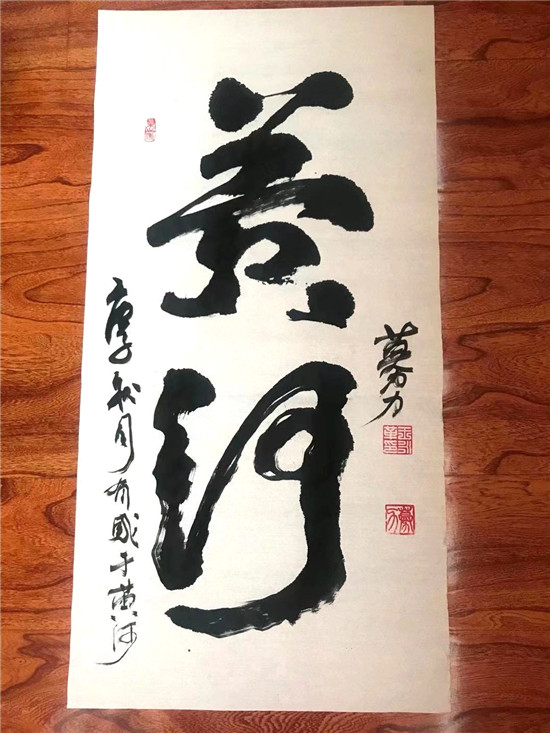 黄河
庚子秋月有感于黄河